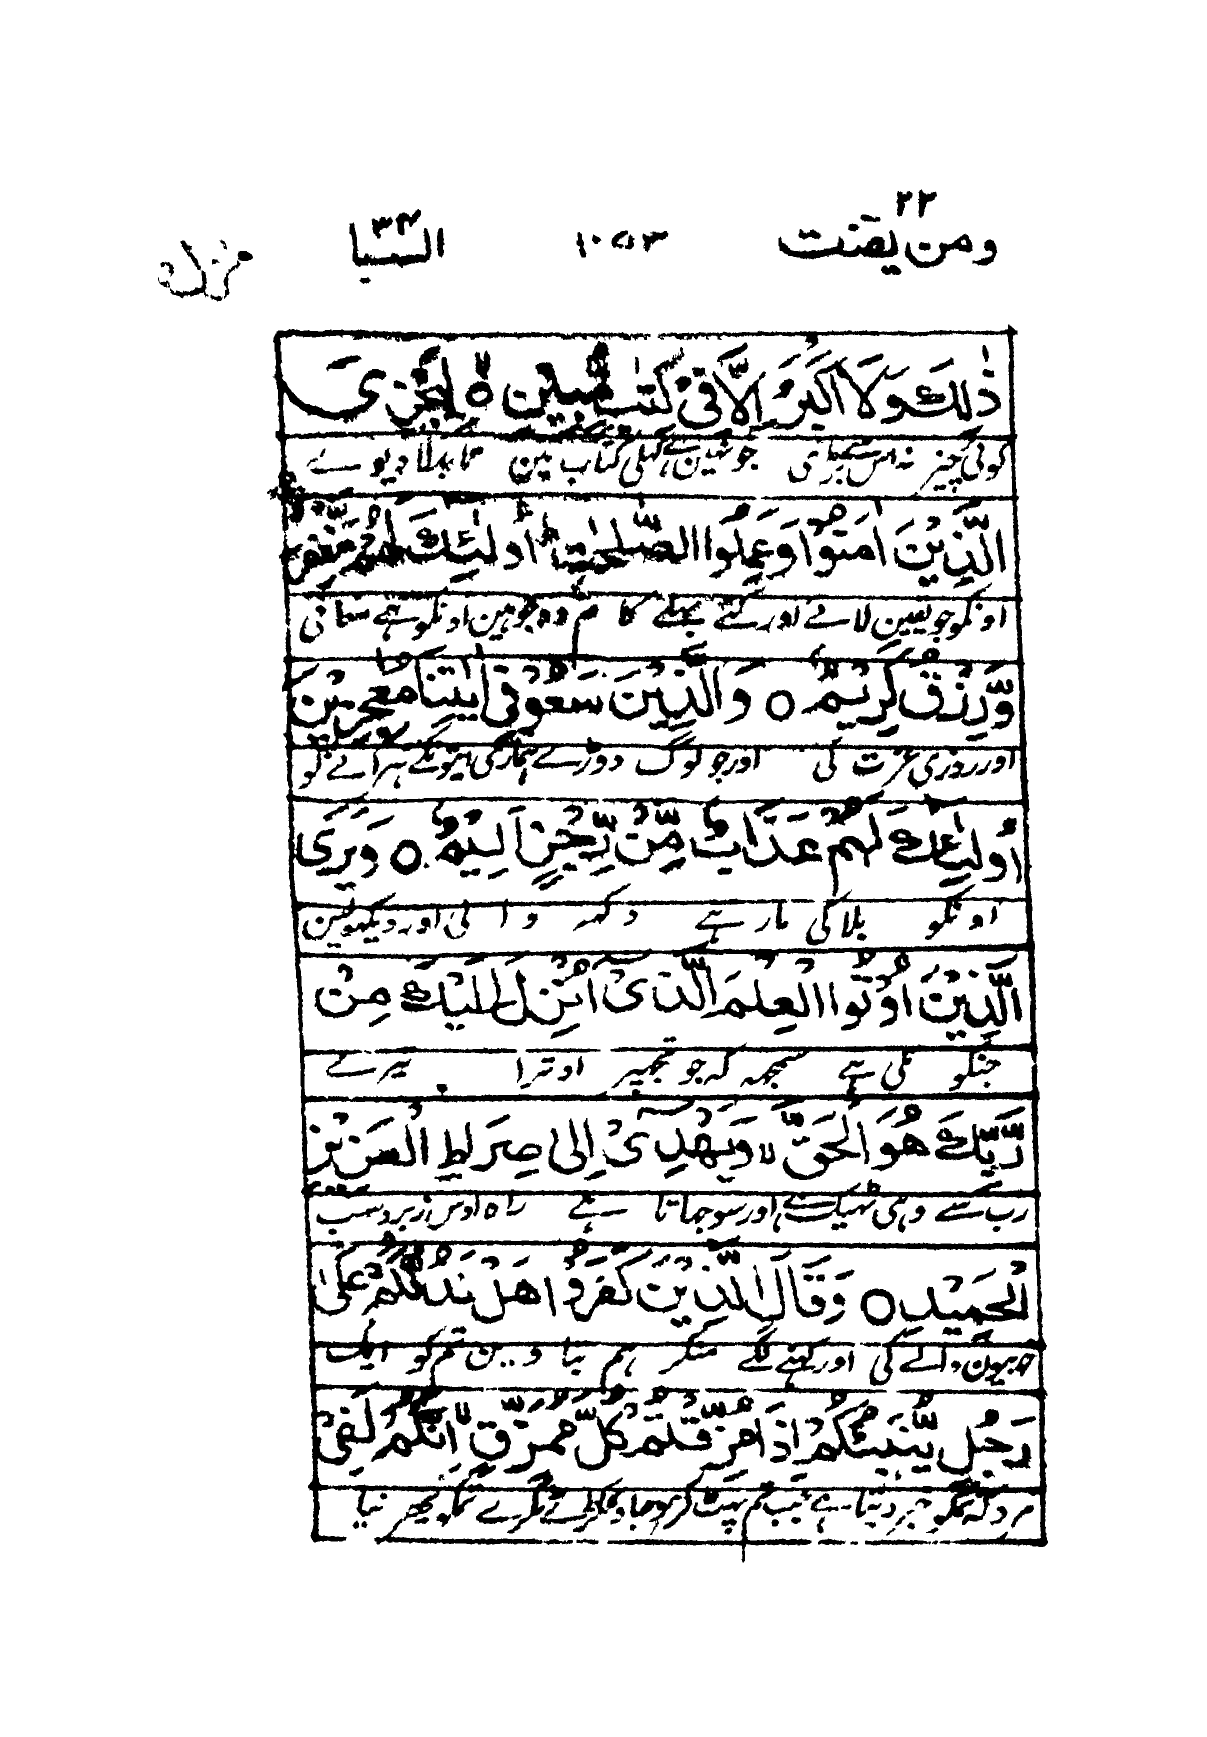 ومن یقنت ۲۲ ۱۰۵۳ السبا ۳۴ منزل ۵
ذٰلِكَ وَلَا أَكْبَرُ اِلَّا فِيْ كِتٰبٍ مُّبِيْنٍ ۙ لِّيَجْزِيَ
کوئی چیز نہ اس سے بڑی جو نہین ہے کھلی کتاب مین تا بدلا دیوے
الَّذِيْنَ اٰمَنُوْا وَعَمِلُوا الصّٰلِحٰتِ ؕ اُولٰٓئِكَ لَهُمْ مَّغْفِرَةٌ
اونکو جو یقین لائے اور کئے بھلے کام وہ جو ہین اونکو ہے معافی
وَّرِزْقٌ كَرِيْمٌ ۝ وَالَّذِيْنَ سَعَوْ فِيْٓ اٰيٰتِنَا مُعٰجِزِيْنَ
اور روزی عزت کی اور جو لوگ دوڑے ہماری آیتونکے ہرانے کو
اُولٰٓئِكَ لَهُمْ عَذَابٌ مِّنْ رِّجْزٍ اَلِيْمٌ ۝ وَيَرَى
اونکو بلا کی مار ہے دکھ والی اور دیکھ لین
الَّذِيْنَ اُوْتُوا الْعِلْمَ الَّذِيْٓ اُنْزِلَ اِلَيْكَ مِنْ
جنکو ملی ہے سمجھ کہ جو تجھپر اوترا تیرے
رَّبِّكَ هُوَ الْحَقَّ ۙ وَيَهْدِيْٓ اِلٰى صِرَاطِ الْعَزِيْزِ
رب سے وہی ٹھیک ہے اور سوجھاتا ہے راہ اوس زبردست
الْحَمِيْدِ ۝ وَقَالَ الَّذِيْنَ كَفَرُوْا هَلْ نَدُلُّكُمْ عَلٰى
خوبیون والے کی اور کہنے لگے منکر ہم بتاوین تمکو ایک
رَجُلٍ يُّنَبِّئُكُمْ اِذَا مُزِّقْتُمْ كُلَّ مُمَزَّقٍ ۙ اِنَّكُمْ لَفِيْ
مرد کہ تمکو خبر دیتا ہے جب تم پھٹ کر ہو جاؤ ٹکڑے ٹکڑے تمکو پھر نیا